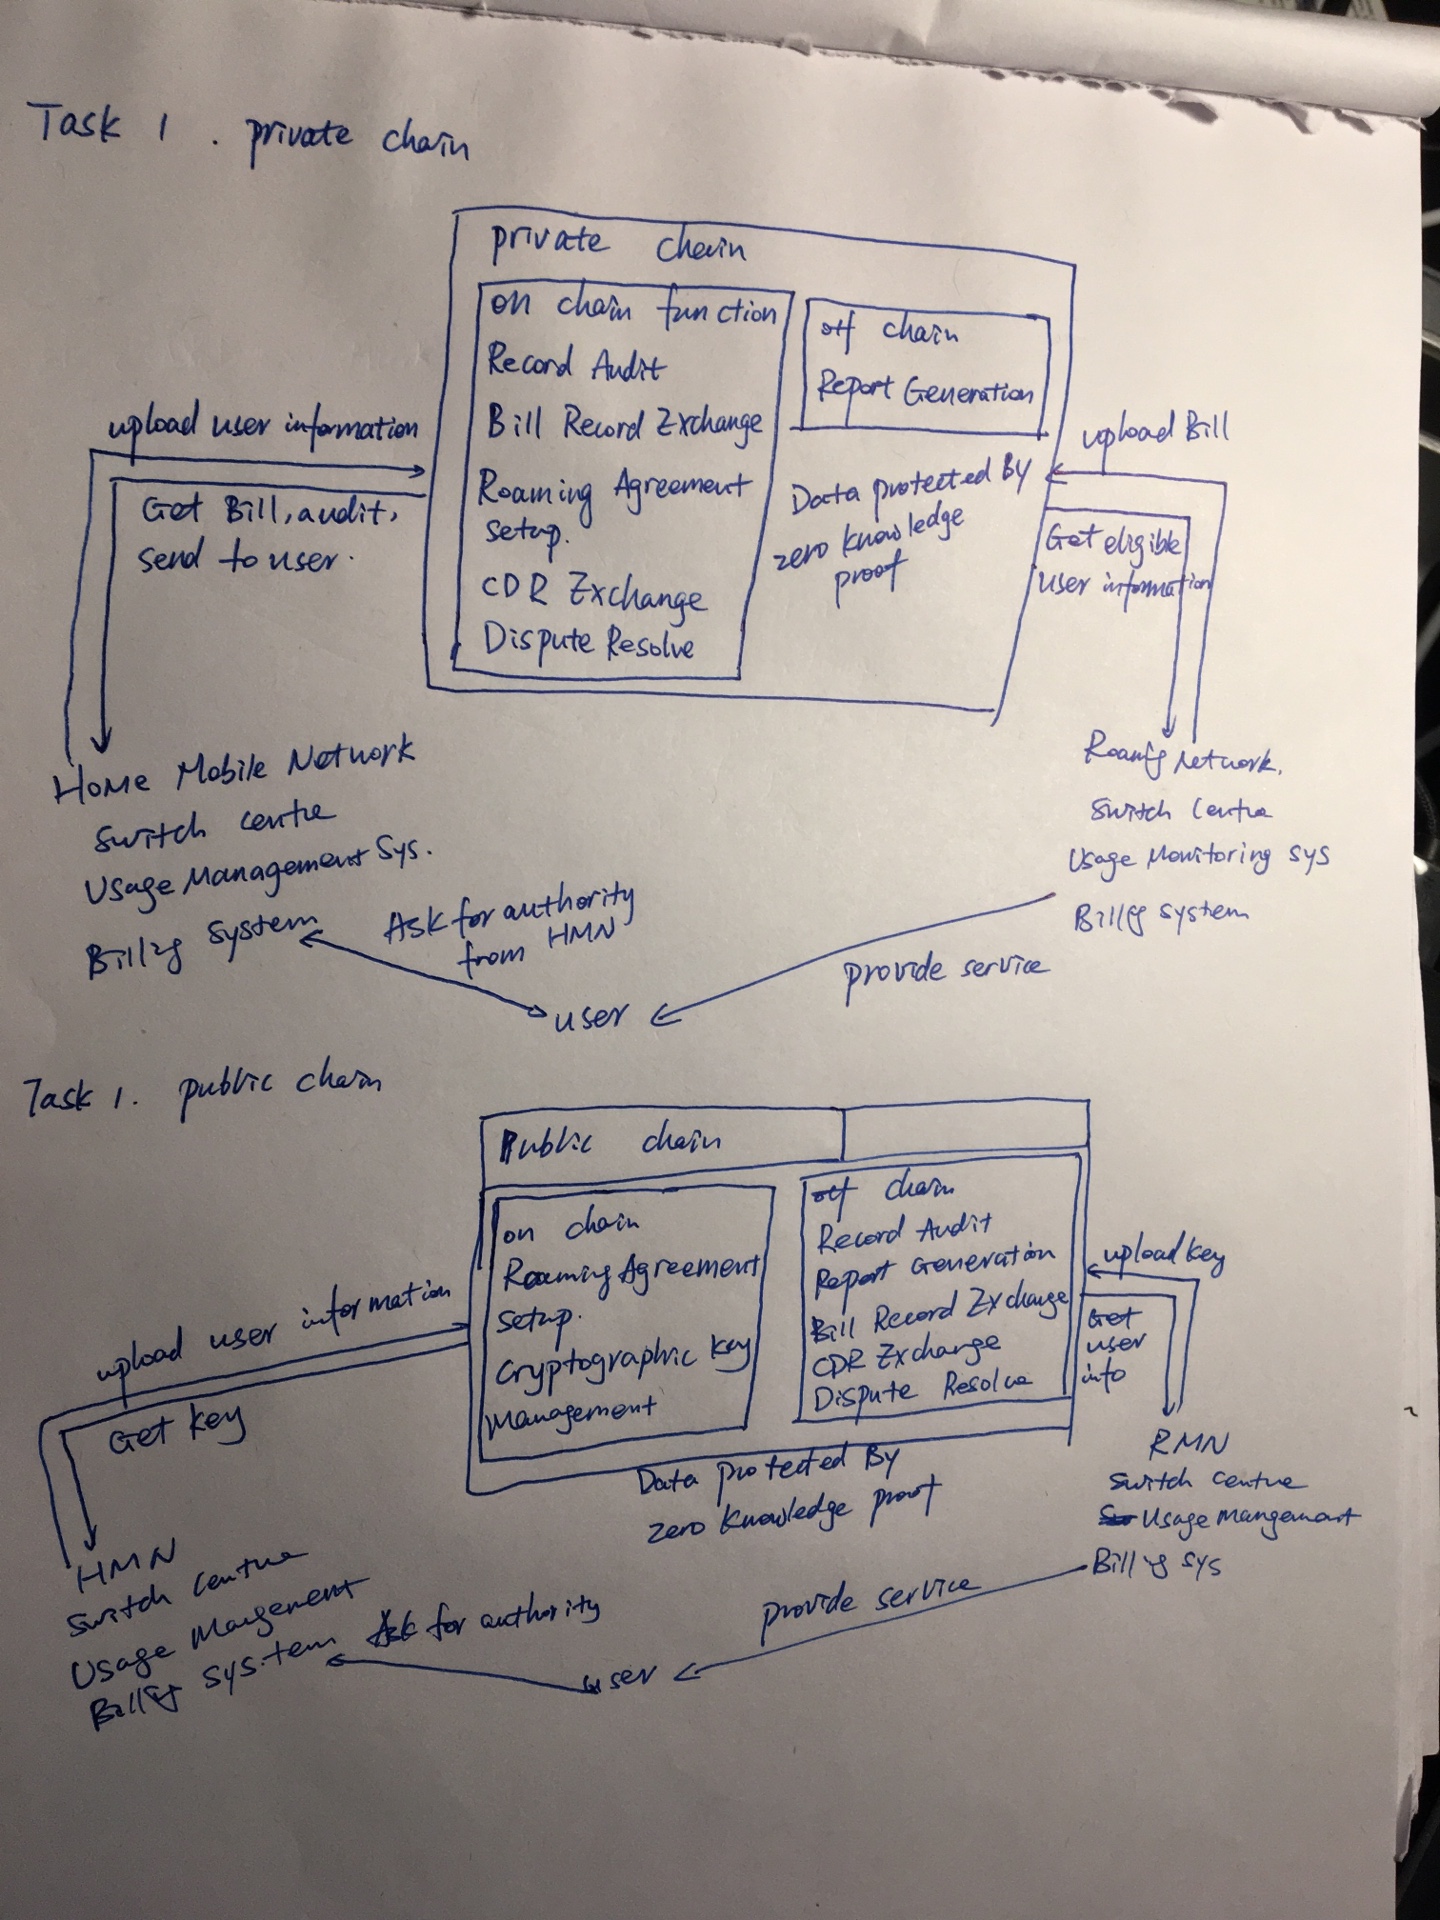 Task 1 . private chain
private chain
on chain function
Record Audit
Bill Record Exchange
Roaming Agreement
setup.
CDR Exchange
Dispute Resolve
off chain
Report Generation
Data protected By
zero knowledge
proof
upload user information
Get Bill, audit,
send to user.
upload Bill
Get eligible
user information
Home Mobile Network
Switch centre
Usage Management Sys.
Billing System
Roaming Network.
Switch Centre
Usage Monitoring sys
Billing system
Ask for authority
from HMN
provide service
user
Task 1. public chain
Public chain
on chain
Roaming Agreement
setup.
Cryptographic key
Management
off chain
Record Audit
Report Generation
Bill Record Exchange
CDR Exchange
Dispute Resolve
Data protected By
zero knowledge proof
upload user information
Get key
upload key
Get
user
info
HMN
Switch Centre
Usage Mangement
Billing System
RMN
Switch Centre
Usage Mangement
Billing sys
Ask for authority
provide service
user